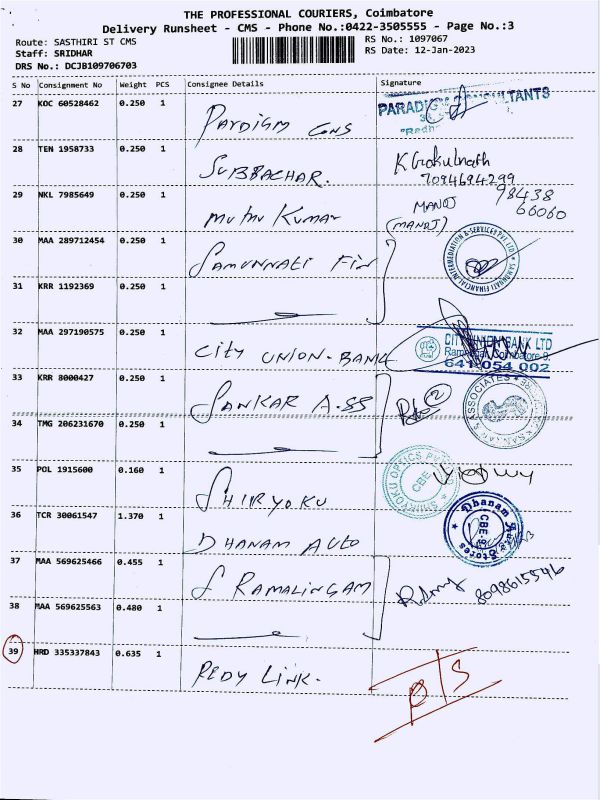 THE PROFESSIONAL COURIERS, Coimbatore
Delivery Runsheet - CMS - Phone No.:0422-3505555 - Page No.:3
Route: SASTHIRI ST CMS
Staff: SRIDHAR
DRS No.: DCJB109706703
RS No.: 1097067
RS Date: 12-Jan-2023
S No Consignment No Weight PCS Consignee Details Signature
27 KOC 60528462 0.250 1 PARDIGM CONS
28 TEN 1958733 0.250 1 SUBBACHAR. K Gokulnath
7094694299
29 NKL 7985649 0.250 1 MUTHU KUMAR MANOJ 98438
(MANOJ) 66060
30 MAA 289712454 0.250 1 SAMUNNATI FIN
SAMUNNATI FINANCIAL INTERMEDIATION & SERVICES PVT. LTD
31 KRR 1192369 0.250 1
32 MAA 297190575 0.250 1 CITY UNION-BANK CITY UNION BANK LTD
Ramnagar, Coimbatore-9.
641 054 002
33 KRR 8000427 0.250 1 SANKAR A.SS
ASSOCIATES
34 TMG 206231670 0.250 1
35 POL 1915600 0.160 1 SHIRYOKU
SHIRYOKU OPTICS
CBE
36 TCR 30061547 1.370 1 DHANAM AUTO
Dhanam Auto Stores
CBE-9
37 MAA 569625466 0.455 1 S RAMALINGAM 8098615546
38 MAA 569625563 0.480 1
39 HRD 335337843 0.635 1 REDY LINK. O/S